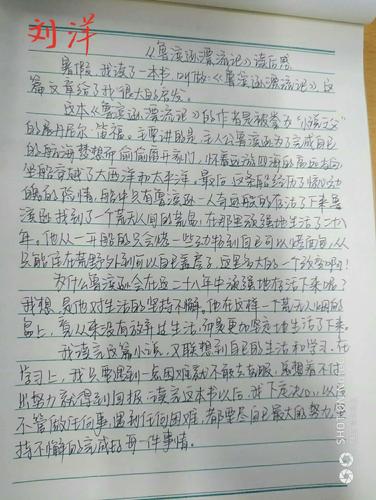 刘洋
《鲁滨逊漂流记》读后感
暑假,我读了一本书,叫做《鲁滨逊漂流记》这
篇文章给了我很大的启发。
这本《鲁滨逊漂流记》的作者是被誉为“小说之父”
的丹尼尔·笛福。主要讲的是主人公鲁滨逊为了完成自己
的航海梦想而偷偷离开家门,怀着远游四海的高远志向,
坐船穿越了大西洋和太平洋。最后,这条船经历了惊心动
魄的险情,船中只有鲁滨逊一人奇迹般的存活了下来鲁
滨逊找到了一个荒无人烟的荒岛,在那里顽强地生活了二十八
年。他从一开始的只会烤一些动物到自己可以烤面包,从
只能住在荒野外到可以自己盖房子,这是多大的一个改变啊!
为什么鲁滨逊会在这二十八年中顽强地存活下来呢?
我想是他对生活的坚持不懈。他在这样一个荒无人烟的
岛上,有从来没有放弃过生活,而是更加坚定地生活了下来。
我读完这篇小说,又联想到自己的生活和学习。在
学习上,我只要遇到一点困难就不敢去克服,总想着不付
出努力就得到回报。读完这本书以后,我下定决心,以后
不管做任何事,遇到任何困难,都要尽自己最大的努力,坚
持不懈的完成好每一件事情。
SHOT ON